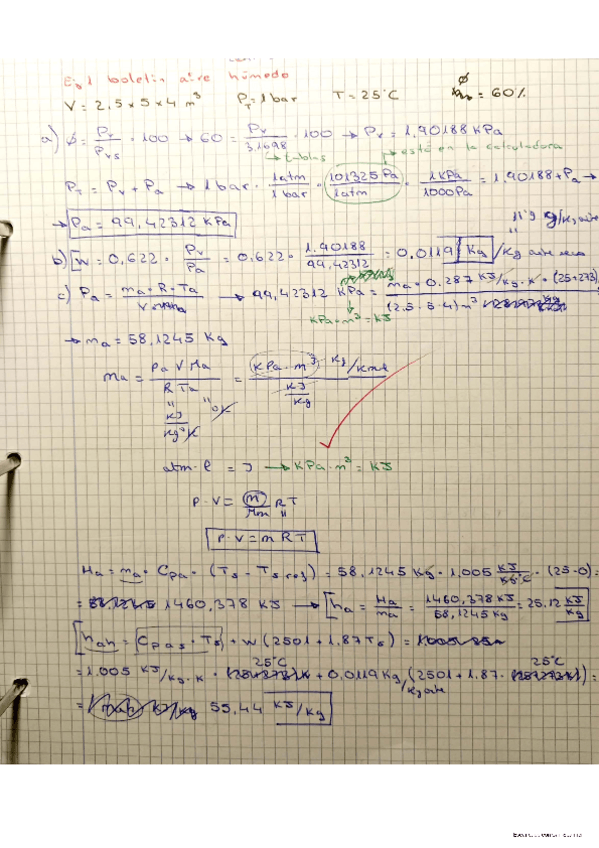 Ej 1 boletín aire húmedo
V = 2,5 x 5 x 4 m³ P_T = 1 bar T = 25°C ϕ = 60%
a) ϕ = Pv/Pvs · 100 → 60 = Pv/3,1698 · 100 → Pv = 1,90188 KPa
→ tablas → está en la calculadora
P_T = Pv + Pa → 1 bar · 1atm/1 bar · 101325 Pa/1atm · 1KPa/1000Pa = 1,90188 + Pa →
→ Pa = 99,42312 KPa
11'9 g/kg aire
b) [W = 0,622 · Pv/Pa = 0,622 · 1,90188/99,42312 = 0,0119 Kg/Kg aire seco
c) Pa = ma · R · Ta/V → 99,42312 KPa = ma · 0,287 KJ/Kg·K · (25+273)/(2,5·5·4) m³
KPa·m³ = KJ
→ ma = 58,1245 Kg
ma = Pa V Ma/R Ta = KPa·m³ · Kg/Kmol / KJ/Kg
" KJ/Kg°K " °K
atm·l = J → KPa·m³ = KJ
P·V = m/Mm RT
P·V = m R T
Ha = ma · Cpa · (Ts - Ts ref) = 58,1245 Kg · 1,005 KJ/Kg°C · (25-0) =
= 1460,378 KJ → [ha = Ha/ma = 1460,378 KJ/58,1245 Kg = 25,12 KJ/Kg
[hah = Cpas · Ts + W (2501 + 1,87 Ts) =
25°C 25°C
= 1,005 KJ/Kg·K · + 0,0119 Kg/Kg aire (2501 + 1,87 · ) =
= 55,44 KJ/Kg